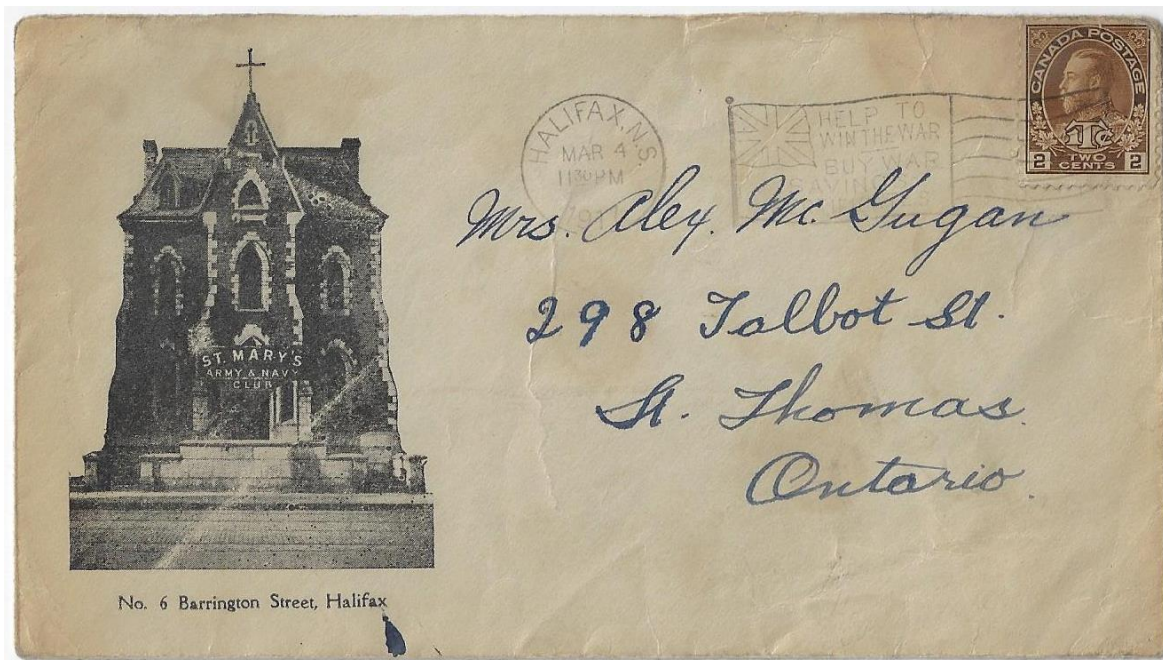 ST. MARY'S
ARMY & NAVY
CLUB
No. 6 Barrington Street, Halifax
HALIFAX, N.S
MAR 4
11 30 PM
HELP TO
WIN THE WAR
BUY WAR
SAVINGS
CANADA POSTAGE
1Tc
2 TWO CENTS 2
Mrs. Alex. Mc. Gugan
298 Talbot St.
St. Thomas.
Ontario.